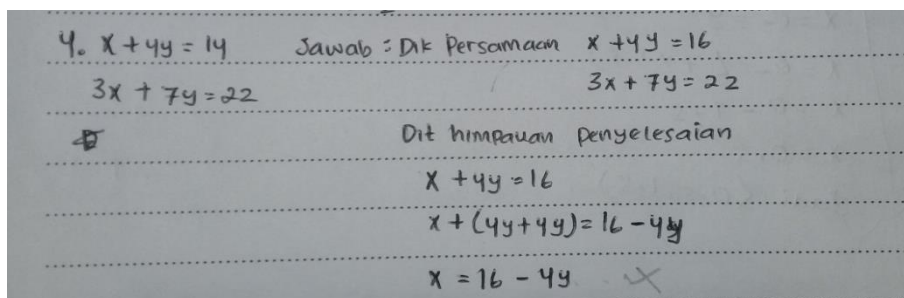 4. x + 4y = 14 Jawab : Dik Persamaan x + 4y = 16
3x + 7y = 22 3x + 7y = 22
Dit himpauan penyelesaian
x + 4y = 16
x + (4y + 4y) = 16 - 4y
x = 16 - 4y